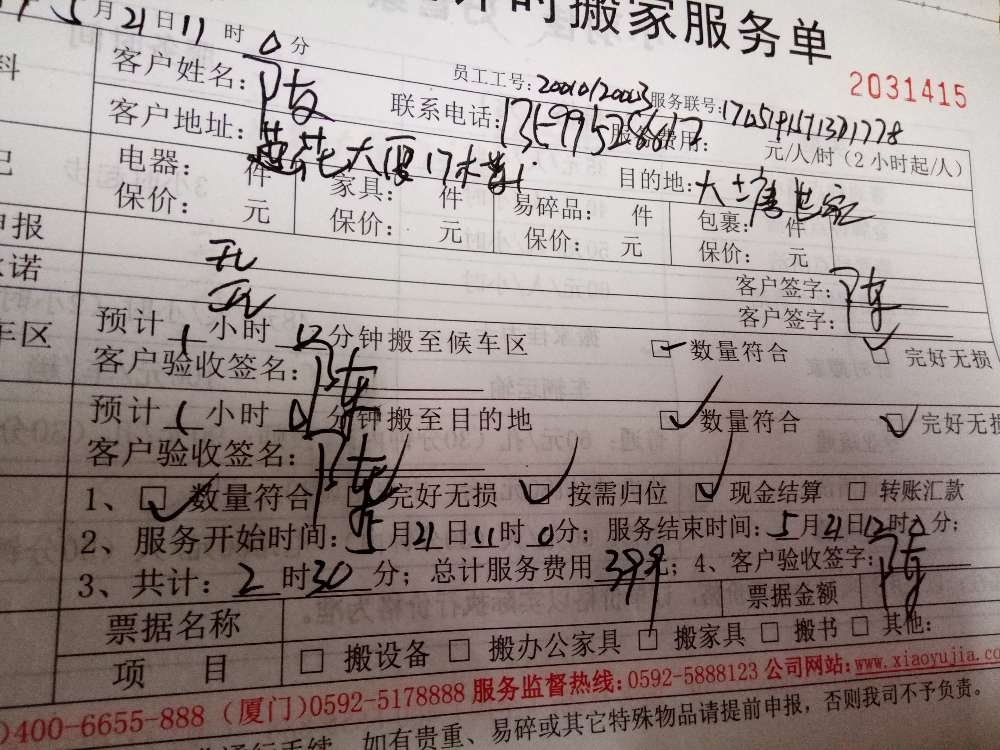 时搬家服务单
5月21日11时0分
员工工号: 服务联号: 2031415
客户姓名：陈 联系电话： 服务费用： 元/人/时（2小时起/人）
客户地址：莲花大厦17 目的地：大唐世家
电器： 件 家具： 件 易碎品： 件 包裹： 件
保价： 元 保价： 元 保价： 元 保价： 元
申报 无 客户签字：陈
诺 无 客户签字：
车区 预计1小时 分钟搬至候车区 数量符合 完好无损
客户验收签名：陈
预计1小时0分钟搬至目的地 数量符合 完好无损
客户验收签名：陈
1、 数量符合 完好无损 按需归位 现金结算 转账汇款
2、服务开始时间：5月21日11时0分；服务结束时间：5月21日12时0分；
3、共计：2时30分；总计服务费用399；4、客户验收签字：陈
票据名称 票据金额
项 目 搬设备 搬办公家具 搬家具 搬书 其他：
)400-6655-888（厦门)0592-5178888 服务监督热线：0592-5888123 公司网站：www.xiaoyujia.co
如有贵重、易碎或其它特殊物品请提前申报，否则我司不予负责。